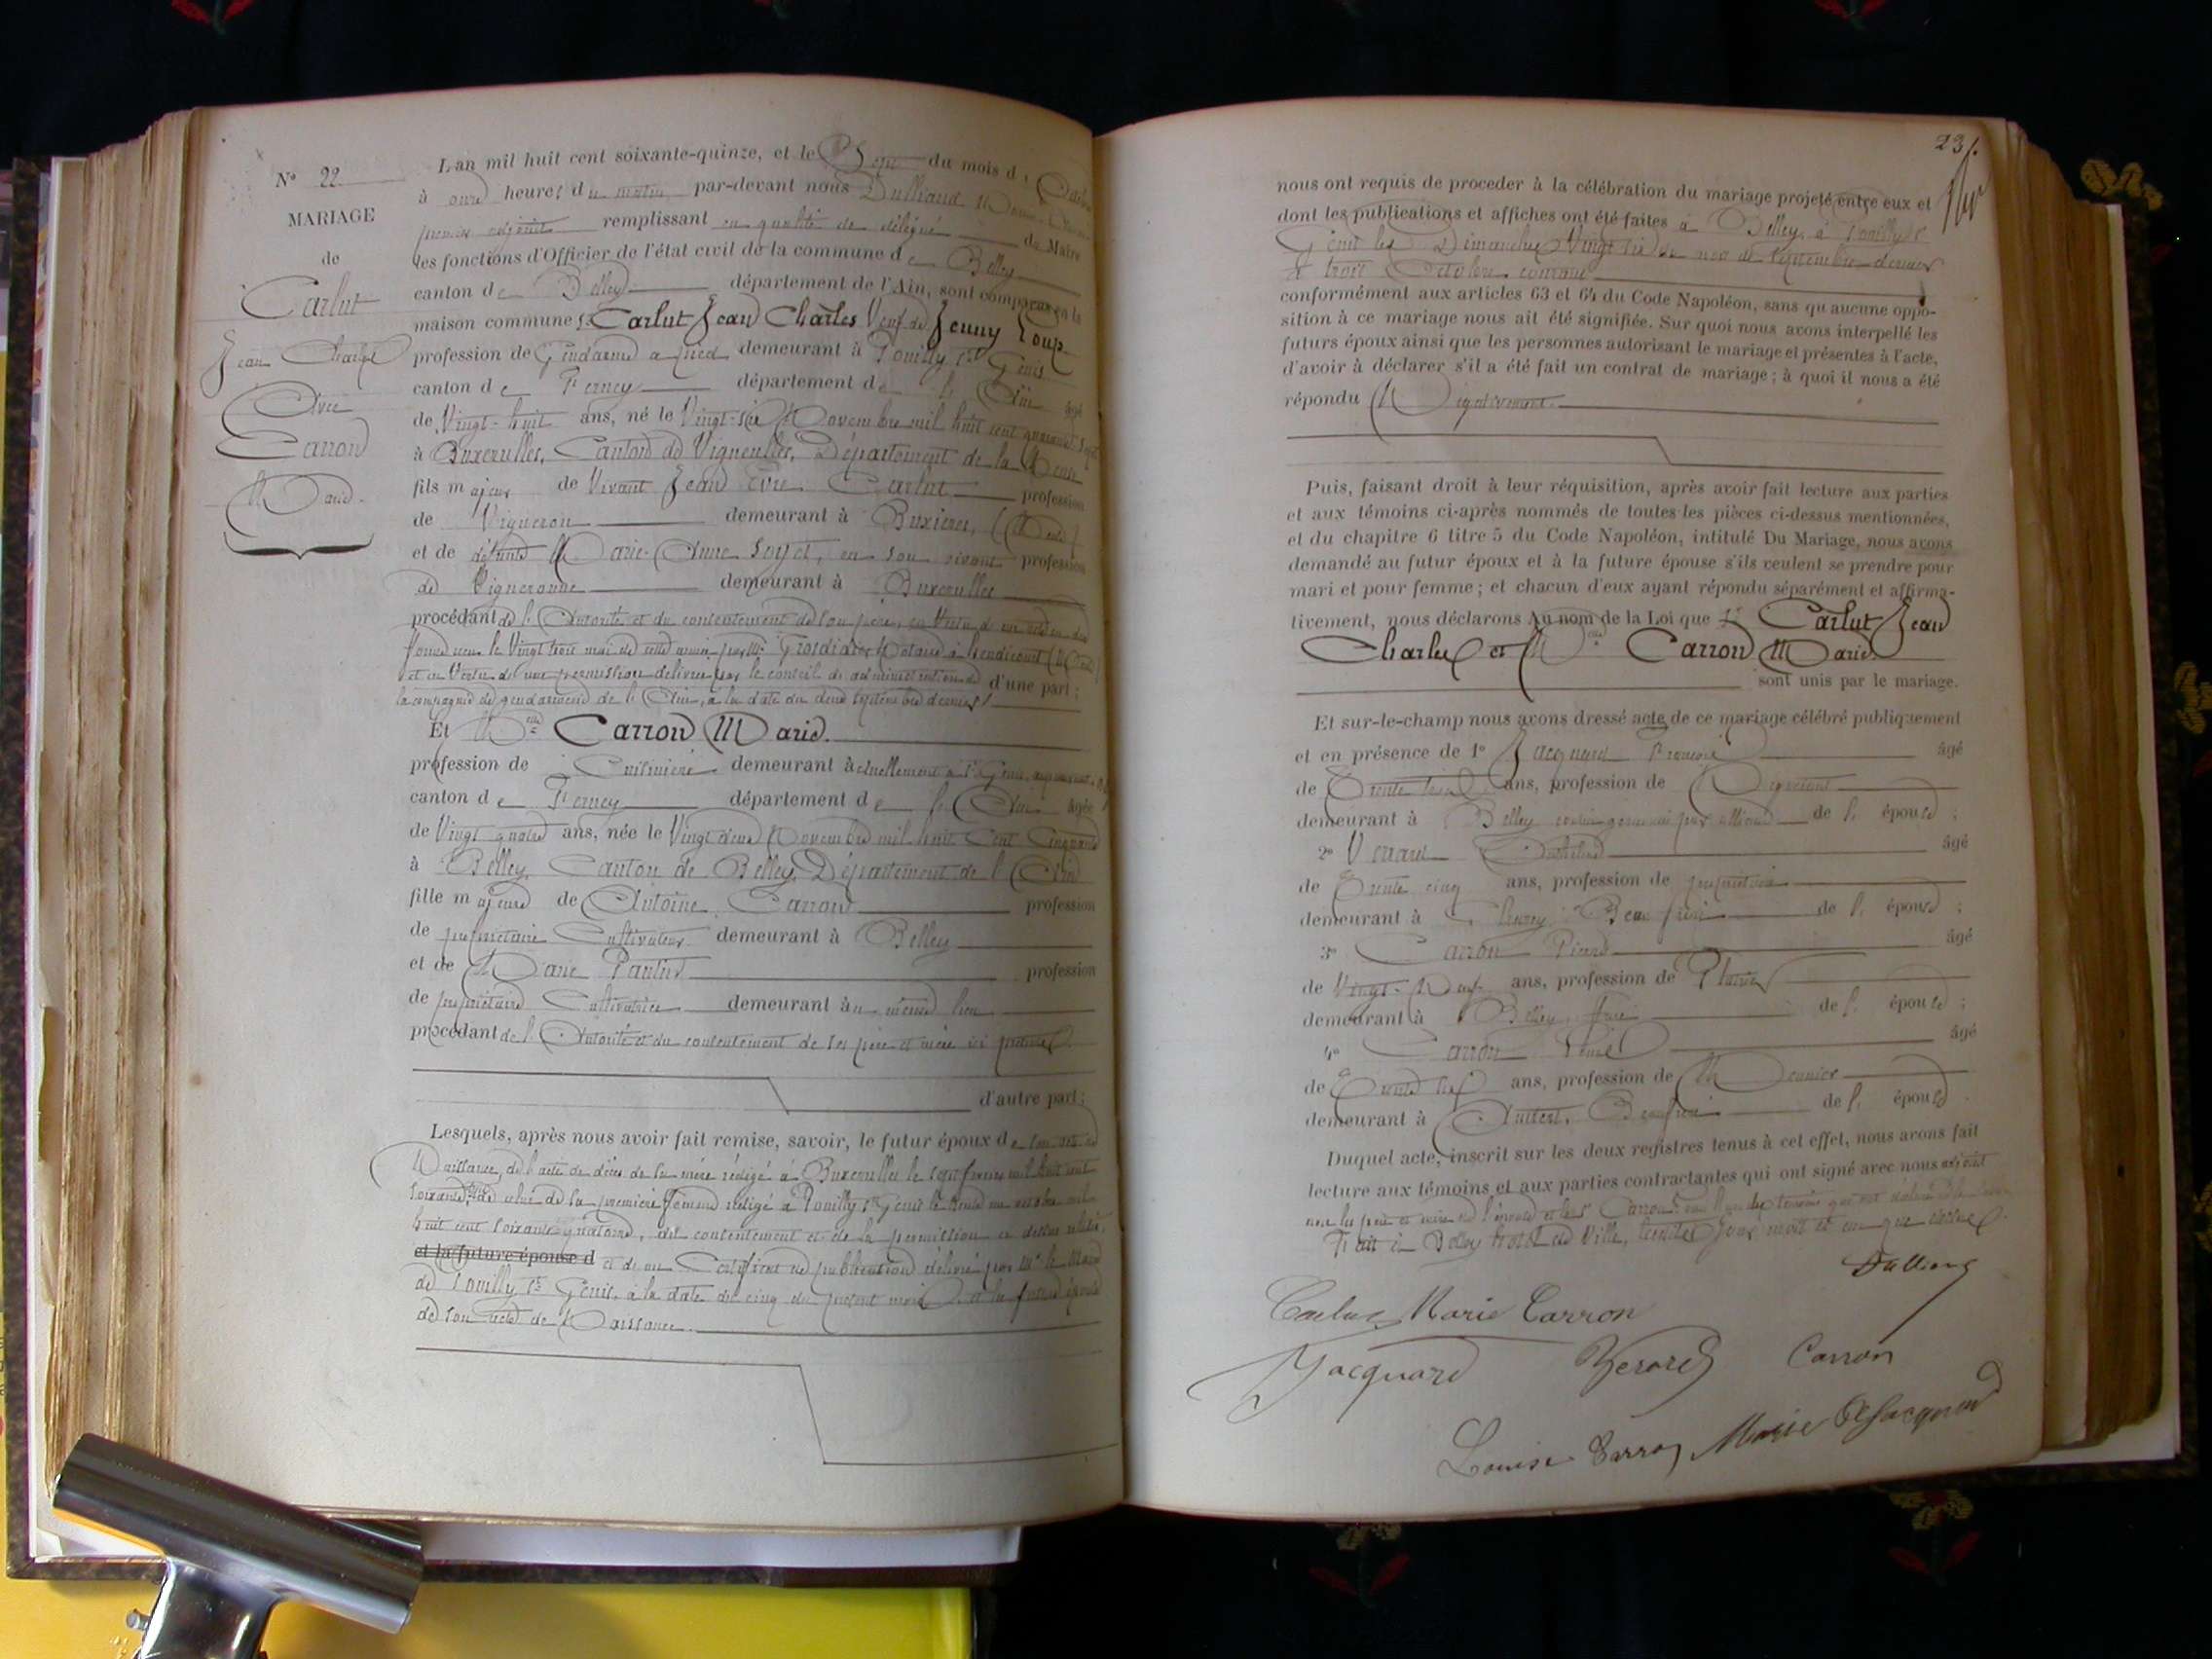 N° 22
MARIAGE
de
Carlut
Jean Charles
Avec
Carron
Marie.
L'an mil huit cent soixante-quinze, et le Sept du mois d'Octobre
à onze heures du matin par-devant nous Dulliand
premier adjoint remplissant en qualité de délégué du Maire
les fonctions d'Officier de l'état civil de la commune de Belley
canton de Belley département de l'Ain, sont comparus en la
maison commune Sr Carlut Jean Charles Veuf de Jenny Loup
profession de Gendarme à pied demeurant à Pouilly St Genis
canton de Ferney département de l'Ain âgé
de Vingt-huit ans, né le Vingt-six Novembre mil huit cent quarante sept
à Buxerulles, Canton de Vigneulles, Département de la Meuse
fils majeur de Vivant Jean Evre Carlut profession
de Vigneron demeurant à Buxières, (Meuse)
et de défunte Marie-Anne Soyet, en son vivant profession
de Vigneronne demeurant à Buxerulles
procédant de l'Autorité et du consentement de son père, en Vertu d'un
le Vingt trois mai de cette année par Me Grosdidier Notaire à Heudicourt (Meuse)
et en Vertu d'une permission délivrée par le conseil de administration de
la compagnie de gendarmerie de l'Ain, à la date du deux Septembre dernier d'une part ;
Et Melle Carron Marie.
profession de Cuisinière demeurant actuellement à St Genis, auparavant à
canton de Ferney département de l'Ain âgée
de Vingt quatre ans, née le Vingt deux Novembre mil huit Cent Cinquante
à Belley, Canton de Belley, Département de l'Ain
fille majeure de Antoine Carron profession
de propriétaire Cultivateur demeurant à Belley
et de Marie Pantin profession
de propriétaire Cultivatrice demeurant au même lieu
procédant de l'Autorité et du consentement de ses père et mère ici présents.
d'autre part ;
Lesquels, après nous avoir fait remise, savoir, le futur époux de son acte de
Naissance, de l'acte de décès de sa mère rédigé à Buxerulles le sept février mil huit cent
soixante de celui de sa première femme rédigé à Pouilly St Genis le trente un octobre mil
huit cent soixante quatorze, du consentement et de la permission ci dessus relatés,
et la future épouse d et d'un Certificat de publication délivré par Mr le Maire
de Pouilly St Genis, à la date du cinq du présent mois, et la future épouse
de son acte de Naissance.
23
nous ont requis de proceder à la célébration du mariage projeté entre eux et
dont les publications et affiches ont été faites à Belley, à Pouilly St
Genis les Dimanches Vingt six du mois de Septembre dernier
et trois Octobre courant
conformément aux articles 63 et 64 du Code Napoléon, sans qu'aucune oppo-
sition à ce mariage nous ait été signifiée. Sur quoi nous avons interpellé les
futurs époux ainsi que les personnes autorisant le mariage et présentes à l'acte,
d'avoir à déclarer s'il a été fait un contrat de mariage ; à quoi il nous a été
répondu Négativement.
Puis, faisant droit à leur réquisition, après avoir fait lecture aux parties
et aux témoins ci-après nommés de toutes les pièces ci-dessus mentionnées,
et du chapitre 6 titre 5 du Code Napoléon, intitulé Du Mariage, nous avons
demandé au futur époux et à la future épouse s'ils veulent se prendre pour
mari et pour femme ; et chacun d'eux ayant répondu séparément et affirma-
tivement, nous déclarons Au nom de la Loi que Sr Carlut Jean
Charles et Melle Carron Marie
sont unis par le mariage.
Et sur-le-champ nous avons dressé acte de ce mariage célébré publiquement
et en présence de 1° Jacquard François âgé
de Trente ans, profession de Négociant
demeurant à Belley cousin germain par alliance de l'épouse ;
2° Verard âgé
de Trente cinq ans, profession de propriétaire
demeurant à Beau frère de l'épouse ;
3° Carron Pierre âgé
de Vingt-Neuf ans, profession de Plâtrier
demeurant à Belley, frère de l'épouse ;
4° Carron âgé
de Trente ans, profession de Meunier
demeurant à Beau frère de l'épouse.
Duquel acte, inscrit sur les deux registres tenus à cet effet, nous avons fait
lecture aux témoins et aux parties contractantes qui ont signé avec nous
Fait à Belley Hotel de Ville, lesdits Jour, mois et an que dessus.
Dulliand
Carlut Marie Carron
Jacquard Verard Carron
Louise Carron Marie Jacquard